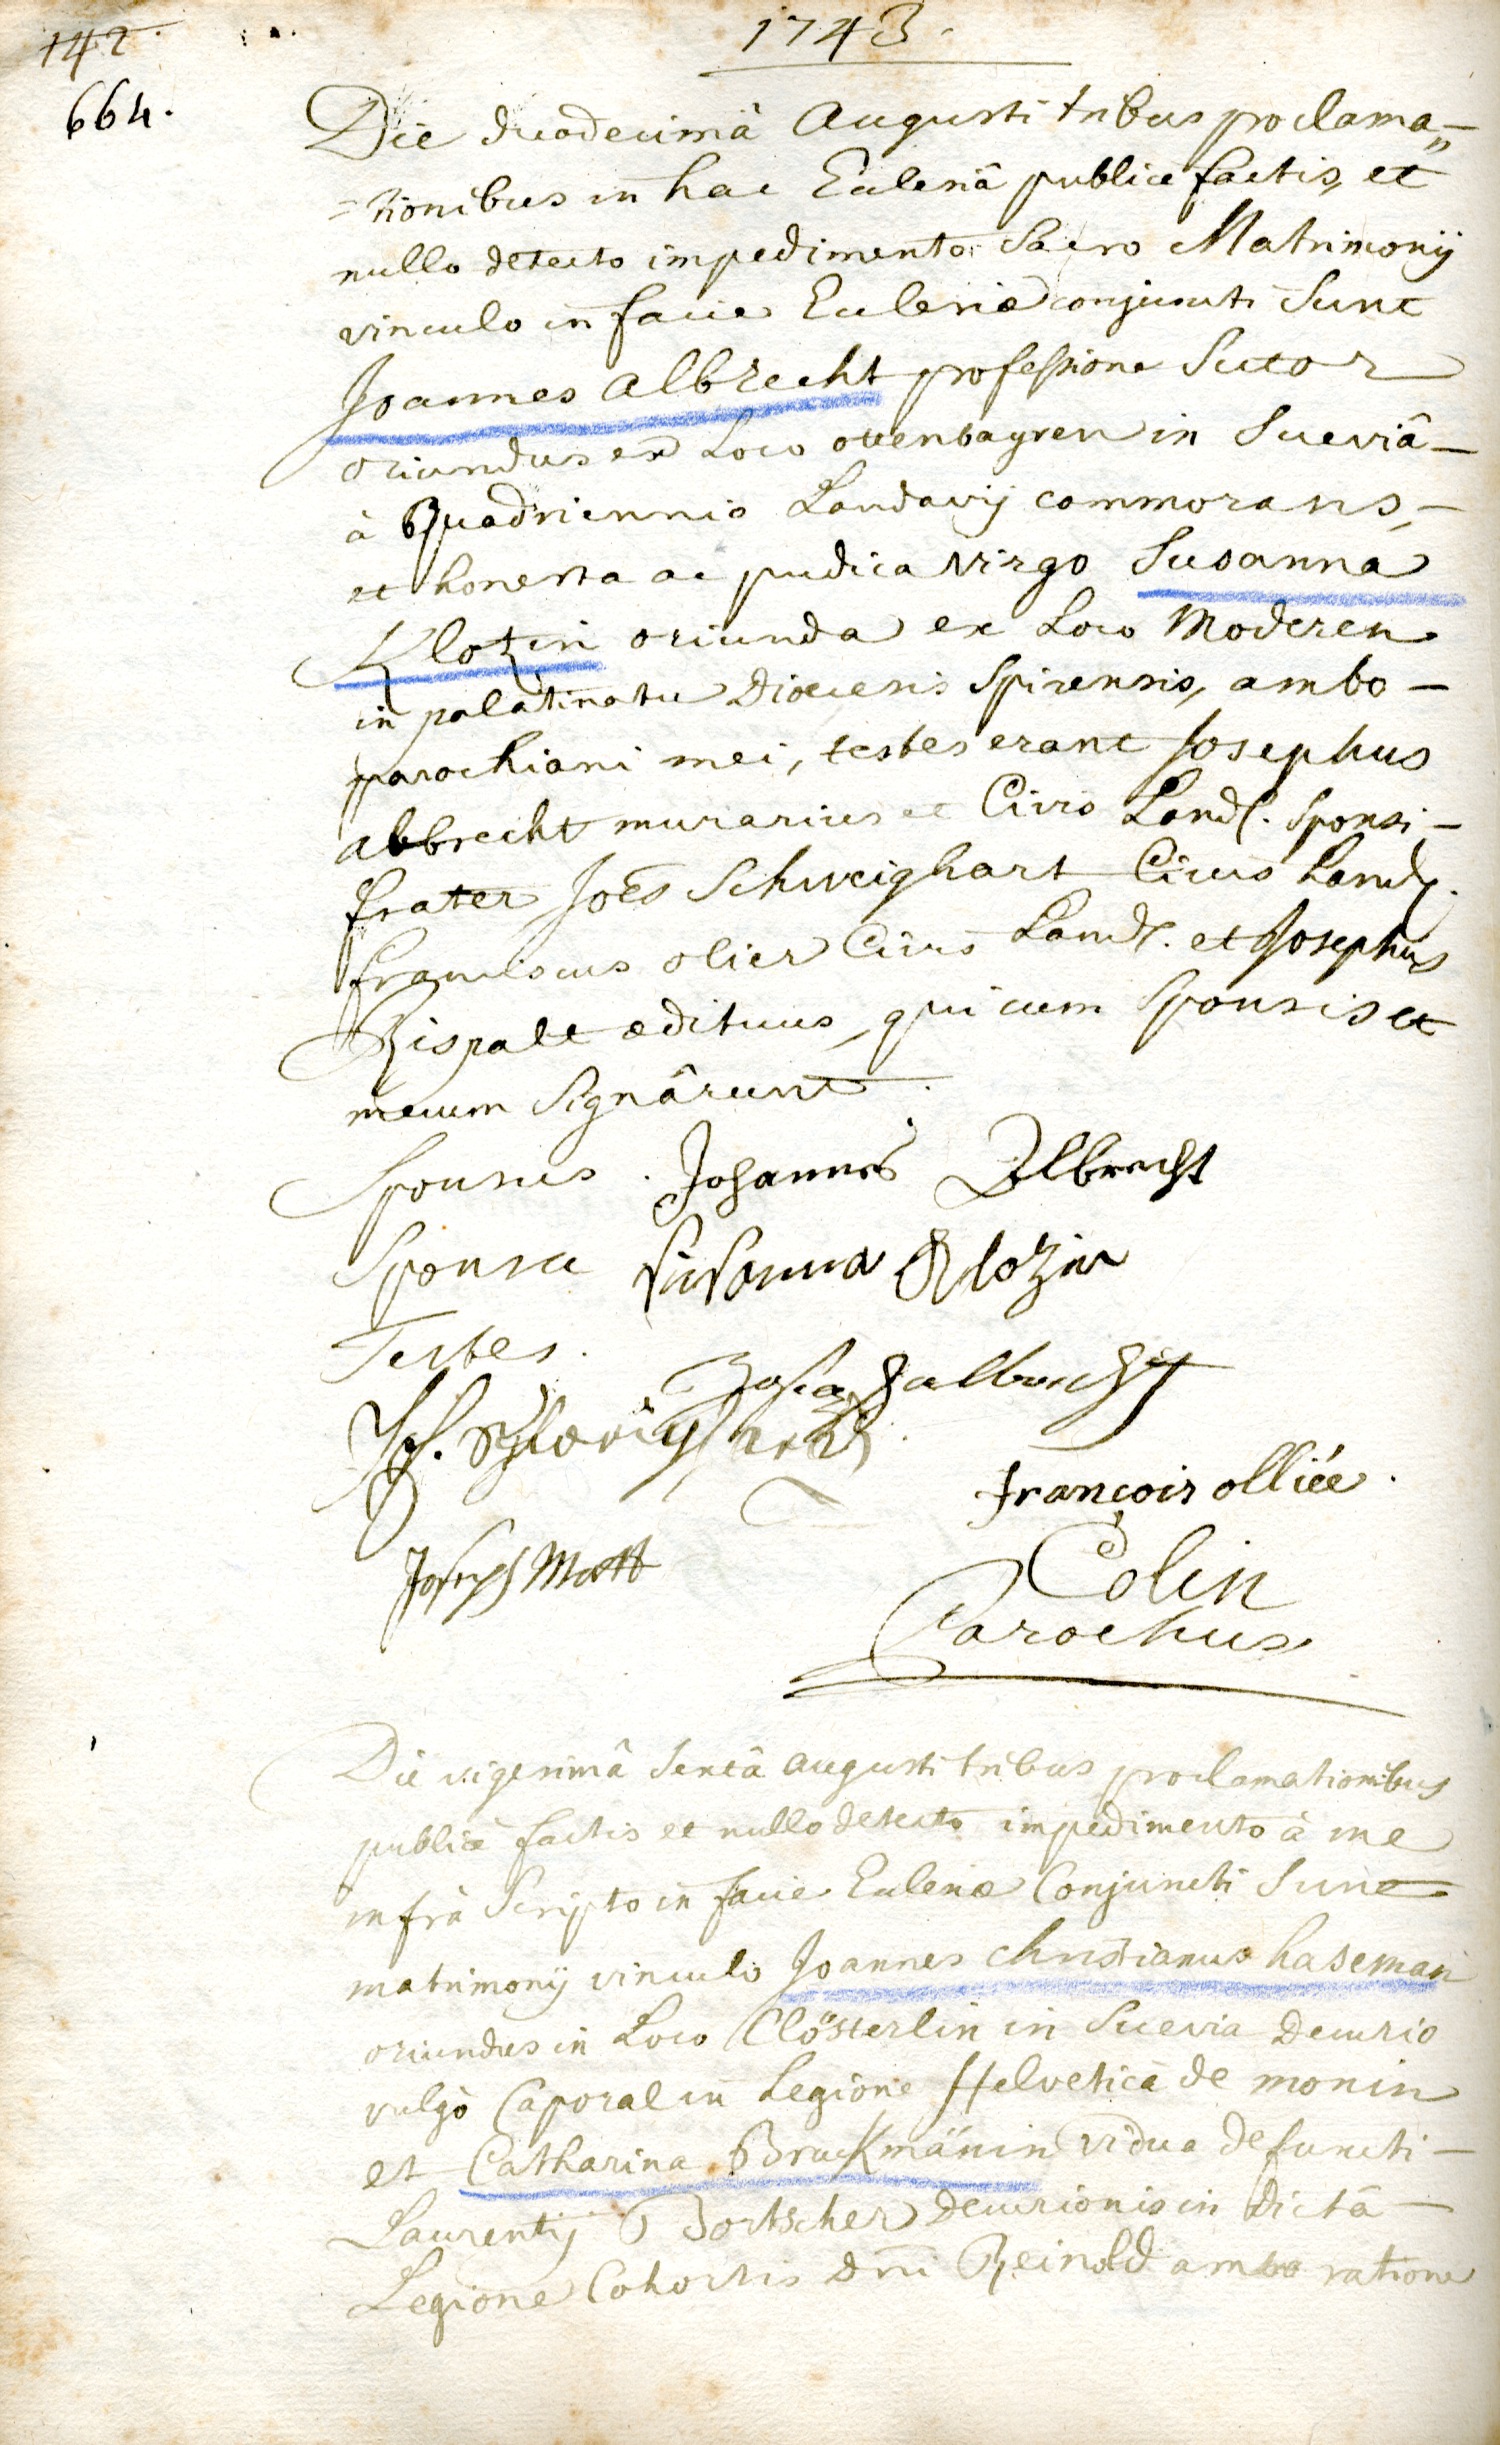 142.
1743.
664.
Die duodecimâ Augusti tribus proclama„
=tionibus in hac Eclesiâ publice factis, et
nullo detecto impedimento Sacro Matrimonij
vinculo in facie Eclesiæ conjuncti Sunt
Joannes Albrecht professione Sutor
oriundus ex Loco ottenbayren in Sueviâ –
à Quadriennio Landavij commorans, –
et honesta ac pudica virgo Susanna
Klotzin oriunda ex Loco Moderen
in palatinatu Diœcesis Spirensis, ambo –
parochiani mei, testes erant Josephus
albrecht murarius et Civis Land. Sponsi –
frater Joês Schweighart Civis Land.
franciscus olier Civis Land. et Josephus
aedituus, qui cum Sponsis et
mecum Signârunt.
Sponsus. Johannes Albrecht
Sponsa Susanna Klozin
Testes.
Josep albrecht
françois olliée.
Joseph Matt
Colin
Parochus
Die vigesimâ Sextâ augusti tribus proclamationibus
publicè factis et nullo detecto impedimento à me
infrà Scripto in facie Eclesiæ Conjuncti Sunt
matrimonij vinculo Joannes christianus haseman
oriundus in Loco Clösterlin in Suevia Decurio
vulgò Caporal in Legione Helvetica de monin
et Catharina Bruckmänin vidua defuncti –
Laurentij Bortscher Decurionis in dictâ –
Legione Cohortis Dni Reinold ambo ratione